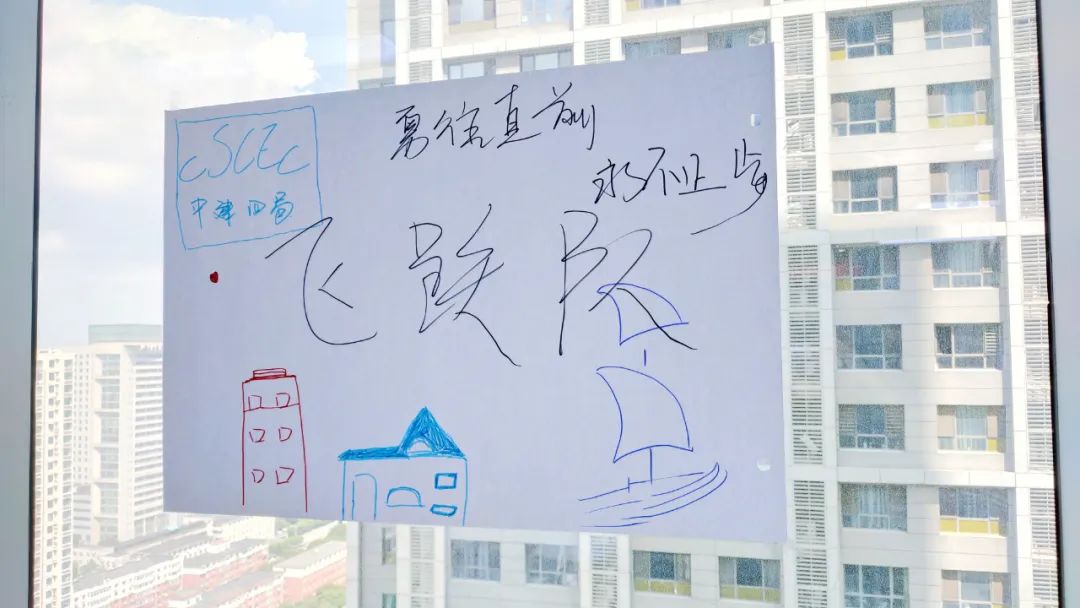 CSCEC
中建四局
勇往直前
永不止步
飞跃队